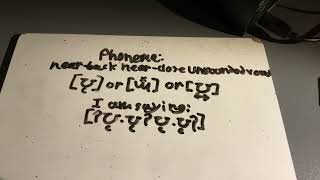 Phoneme:
near-back near-close unrounded vowel
[ʊ̜] or [ɯ̽] or [ʊ͍]
I am saying:
[ʔʊ̜.ʊ̜ʔʊ̜.ʊ̜ʔ]